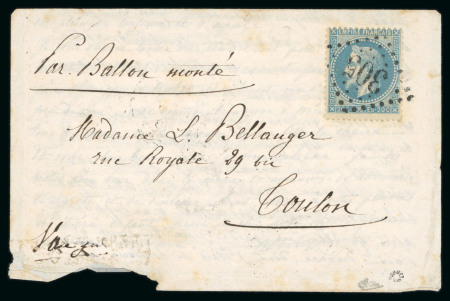 Par Ballon monté
305
Madame L. Bellanger
rue Royale 29 bis
Toulon
Var